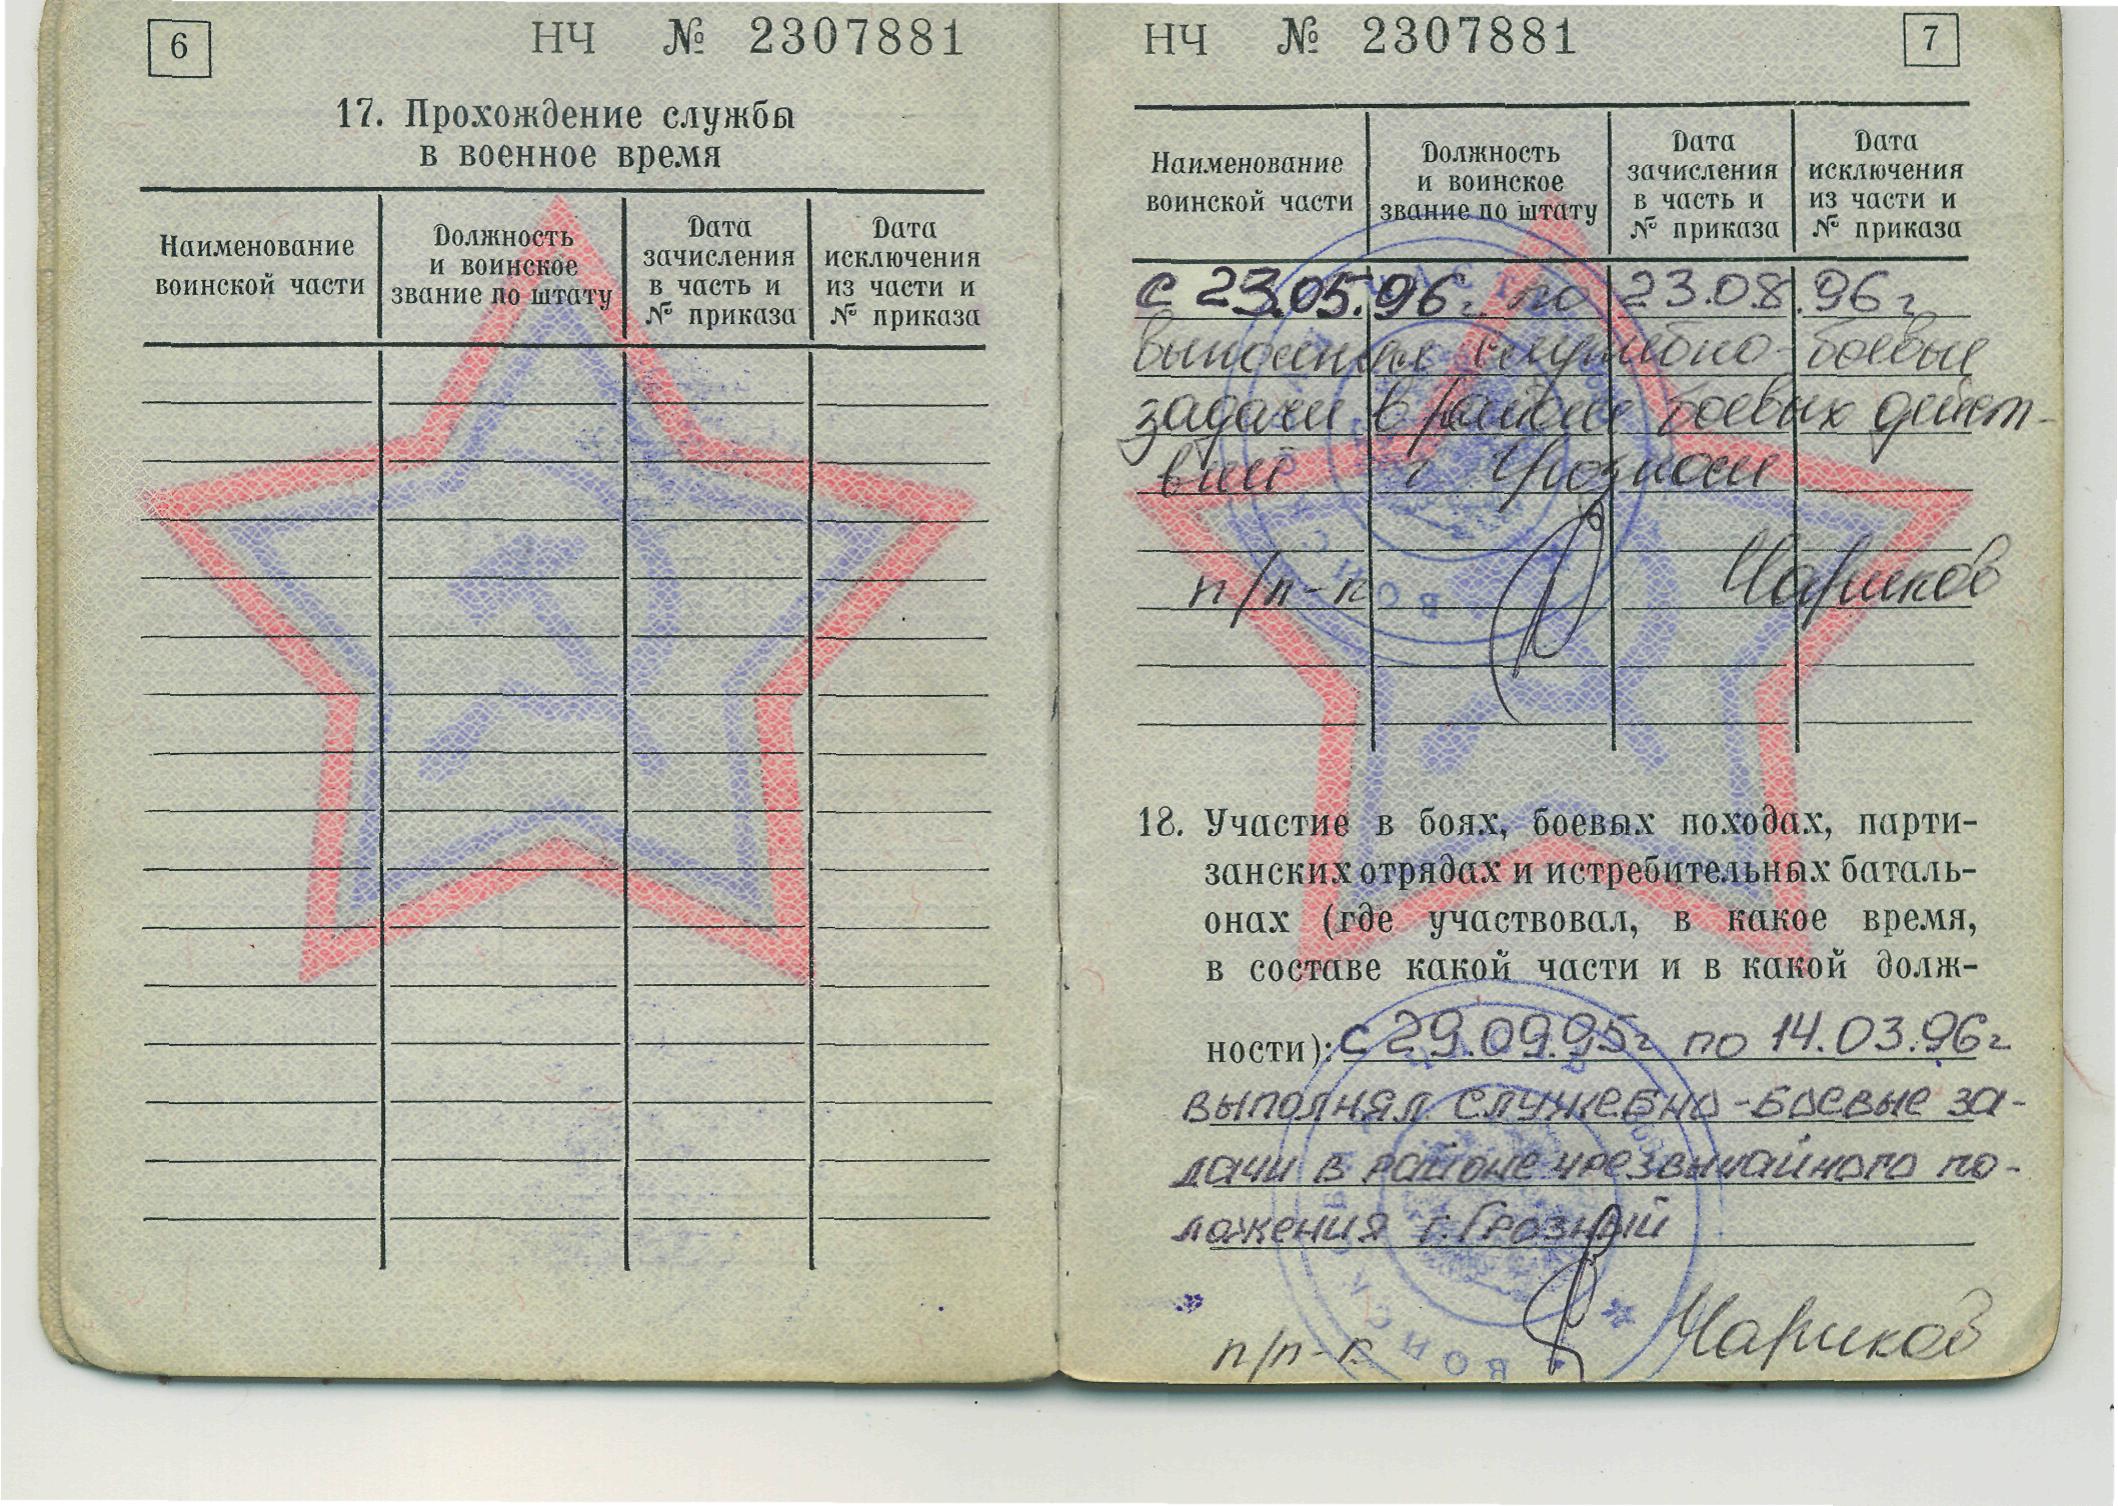 6
НЧ № 2307881
17. Прохождение службы
в военное время
Наименование
воинской части
Должность
и воинское
звание по штату
Дата
зачисления
в часть и
№ приказа
Дата
исключения
из части и
№ приказа
НЧ № 2307881
7
Наименование
воинской части
Должность
и воинское
звание по штату
Дата
зачисления
в часть и
№ приказа
Дата
исключения
из части и
№ приказа
с 23.05.96г. по 23.08.96г
выполнял служебно-боевые
задачи в районе боевых дейст-
вий г Грозном
п/п-к Чариков
18. Участие в боях, боевых походах, парти-
занских отрядах и истребительных баталь-
онах (где участвовал, в какое время,
в составе какой части и в какой долж-
ности): с 29.09.95г по 14.03.96г
выполнял служебно-боевые за-
дачи в районе чрезвычайного по-
ложения г. Грозный
п/п-к Чариков